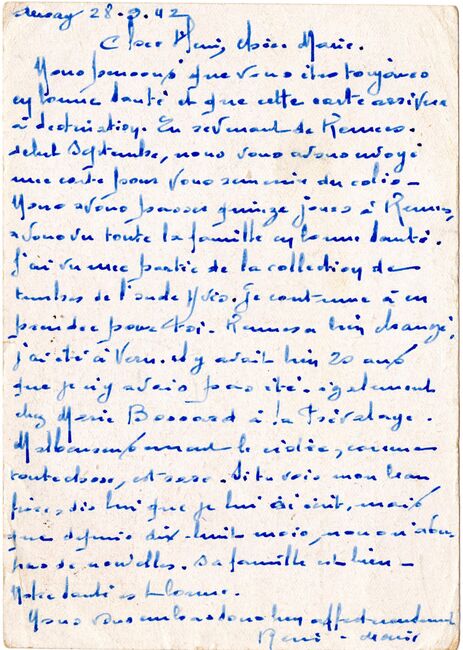 28.9.42
Cher René, chère Marie.
Nous pensons que vous êtes toujours
en bonne santé et que cette carte arrivera
à destination. En revenant de Rennes.
début Septembre, nous vous avons envoyé
une carte pour vous remercier du colis -
Nous avons passer quinze jours à Rennes,
avons vu toute la famille en bonne santé.
J'ai vu une partie de la collection de
timbres de l'oncle Yves. Je continue à en
prendre pour toi. Rennes a bien changé,
j'ai été à Vern. il y avait bien 20 ans
que je n'y avais pas été. également
chez Marie Bossard à la
Malheureusement le cidre, comme
toute chose, est rare. Si tu vois mon beau
frère, dis lui que je lui ai écrit, mais
que depuis dix-huit mois, nous n'avons
pas de nouvelles. Sa famille est bien -
Notre santé est bonne.
Nous vous embrassons bien affectueusement
René - Marie